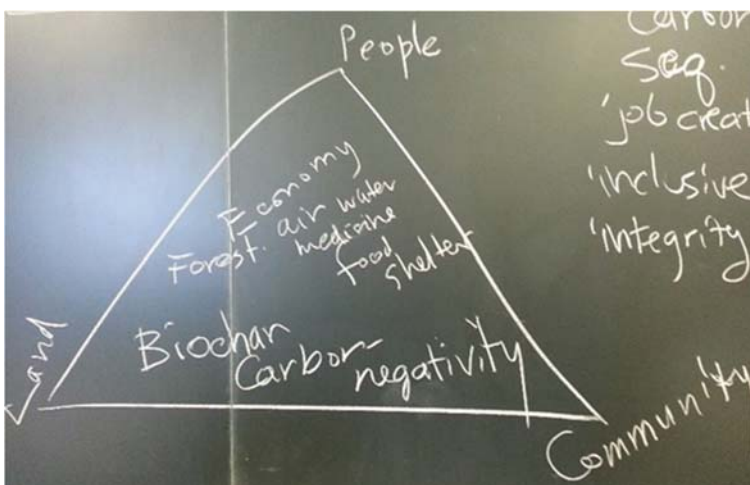 People
Economy
Forest. air water
medicine
food
shelter
Land
Biochar
Carbon-
negativity
Community
Carbon
Seq.
'job creat
'inclusive
'integrity